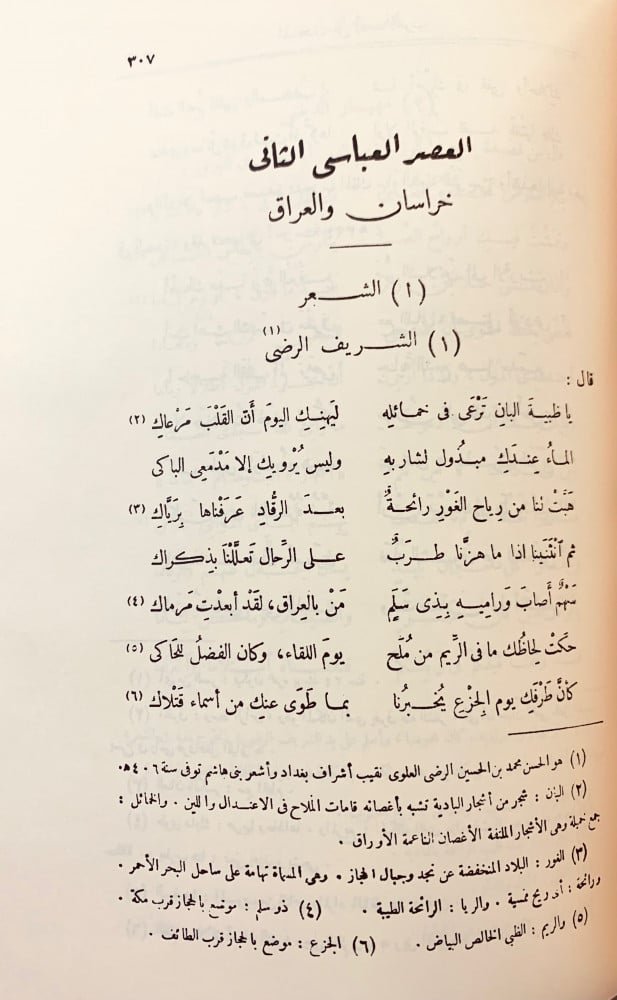 ٣٠٧
العصر العباسى الثانى
خراسان والعراق
(١) الشعر
(١) الشريف الرضى (١)
قال :
يا ظبيةَ البانِ تَرْعَى فى خمائلِه ليَهنِكِ اليومَ أنّ القَلْبَ مَرْعاكِ (٢)
الماءُ عِندَكِ مبذُول لشاربهِ وليس يُرْويكِ إلا مَدْمَعِى الباكى
هَبَّتْ لنا من رِياح الغَوْرِ رائحةٌ بعدَ الرقُّادِ عَرَفناها بِرَيَّاكِ (٣)
ثم اْنْثَنَينا اذا ما هزَّنا طَرَبٌ على الرِّحال تَعلَّلْنَا بذِكراك
سَهْمٌ أَصابَ وَراميهِ بِذِى سَلَمٍ مَنْ بالعِراق، لقَدْ أبعدْتِ مَرماك (٤)
حكَتْ لِحاظُك ما فى الرِّيم من مُلَح يومَ اللقاء، وكان الفضلُ للحَاكى (٥)
كأنَّ طَرْفَكِ يوم الِجزْعِ يُخبرُنا بما طَوَى عنكِ من أسماء قَتْلاك (٦)
(١) هو الحسن محمد بن الحسين الرضى العلوى نقيب أشراف بغداد وأشعر بنى هاشم توفى سنة ٤٠٦ هـ.
(٢) البان : شجر من أشجار البادية تشبه بأغصانه قامات الملاح فى الاعتدال واللين . والخمائل :
جمع خميلة وهى الأشجار الملتفة الأغصان الناعمة الأوراق .
(٣) الغور : البلاد المنخفضة عن نجد وجبال الحجاز . وهى المسماة تهامة على ساحل البحر الأحمر .
ورائحة : أى ريح ممسية . والريا : الرائحة الطيبة . (٤) ذو سلم : موضع بالحجاز قرب مكة .
(٥) والريم : الظبى الخالص البياض . (٦) الجزع : موضع بالحجاز قرب الطائف .